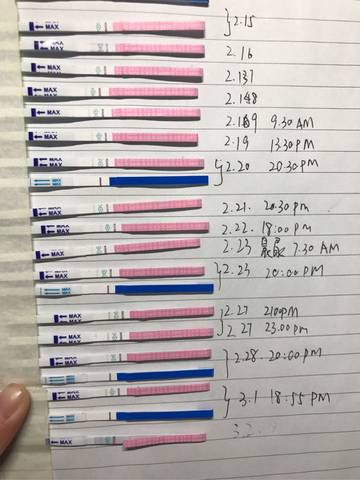 ← MAX
2.15
← MAX
2.16
← MAX
2.17
← MAX
2.18
← MAX
2.19 9.30 AM
← MAX
2.19 13.30PM
← MAX
2.20 20:30PM
← MAX
2.21. 20.30pm
← MAX
2.22. 18:00pm
← MAX
2.23 晨尿 7.30 AM
← MAX
2.23 20:00PM
← MAX
2.27 2100PM
← MAX
2.27 23:00pm
← MAX
2.28 20:00PM
← MAX
3.1 18:55 PM
← MAX